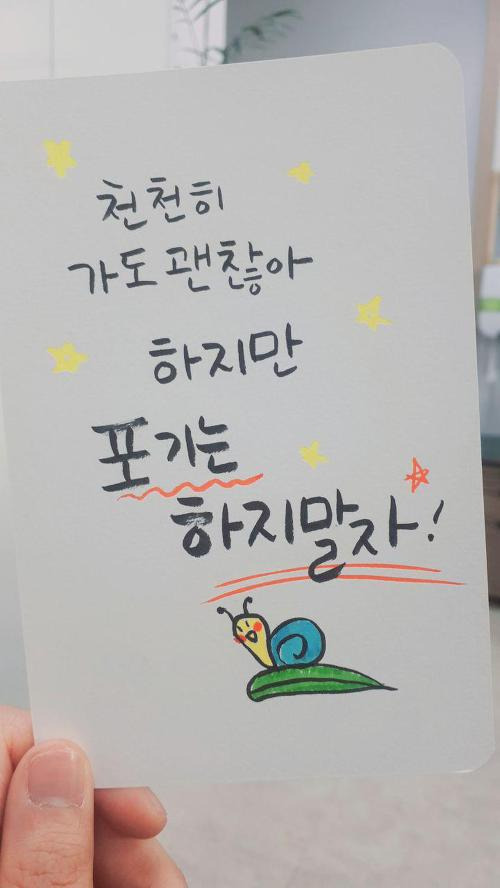 천천히
가도 괜찮아
하지만
포기는
하지말자!